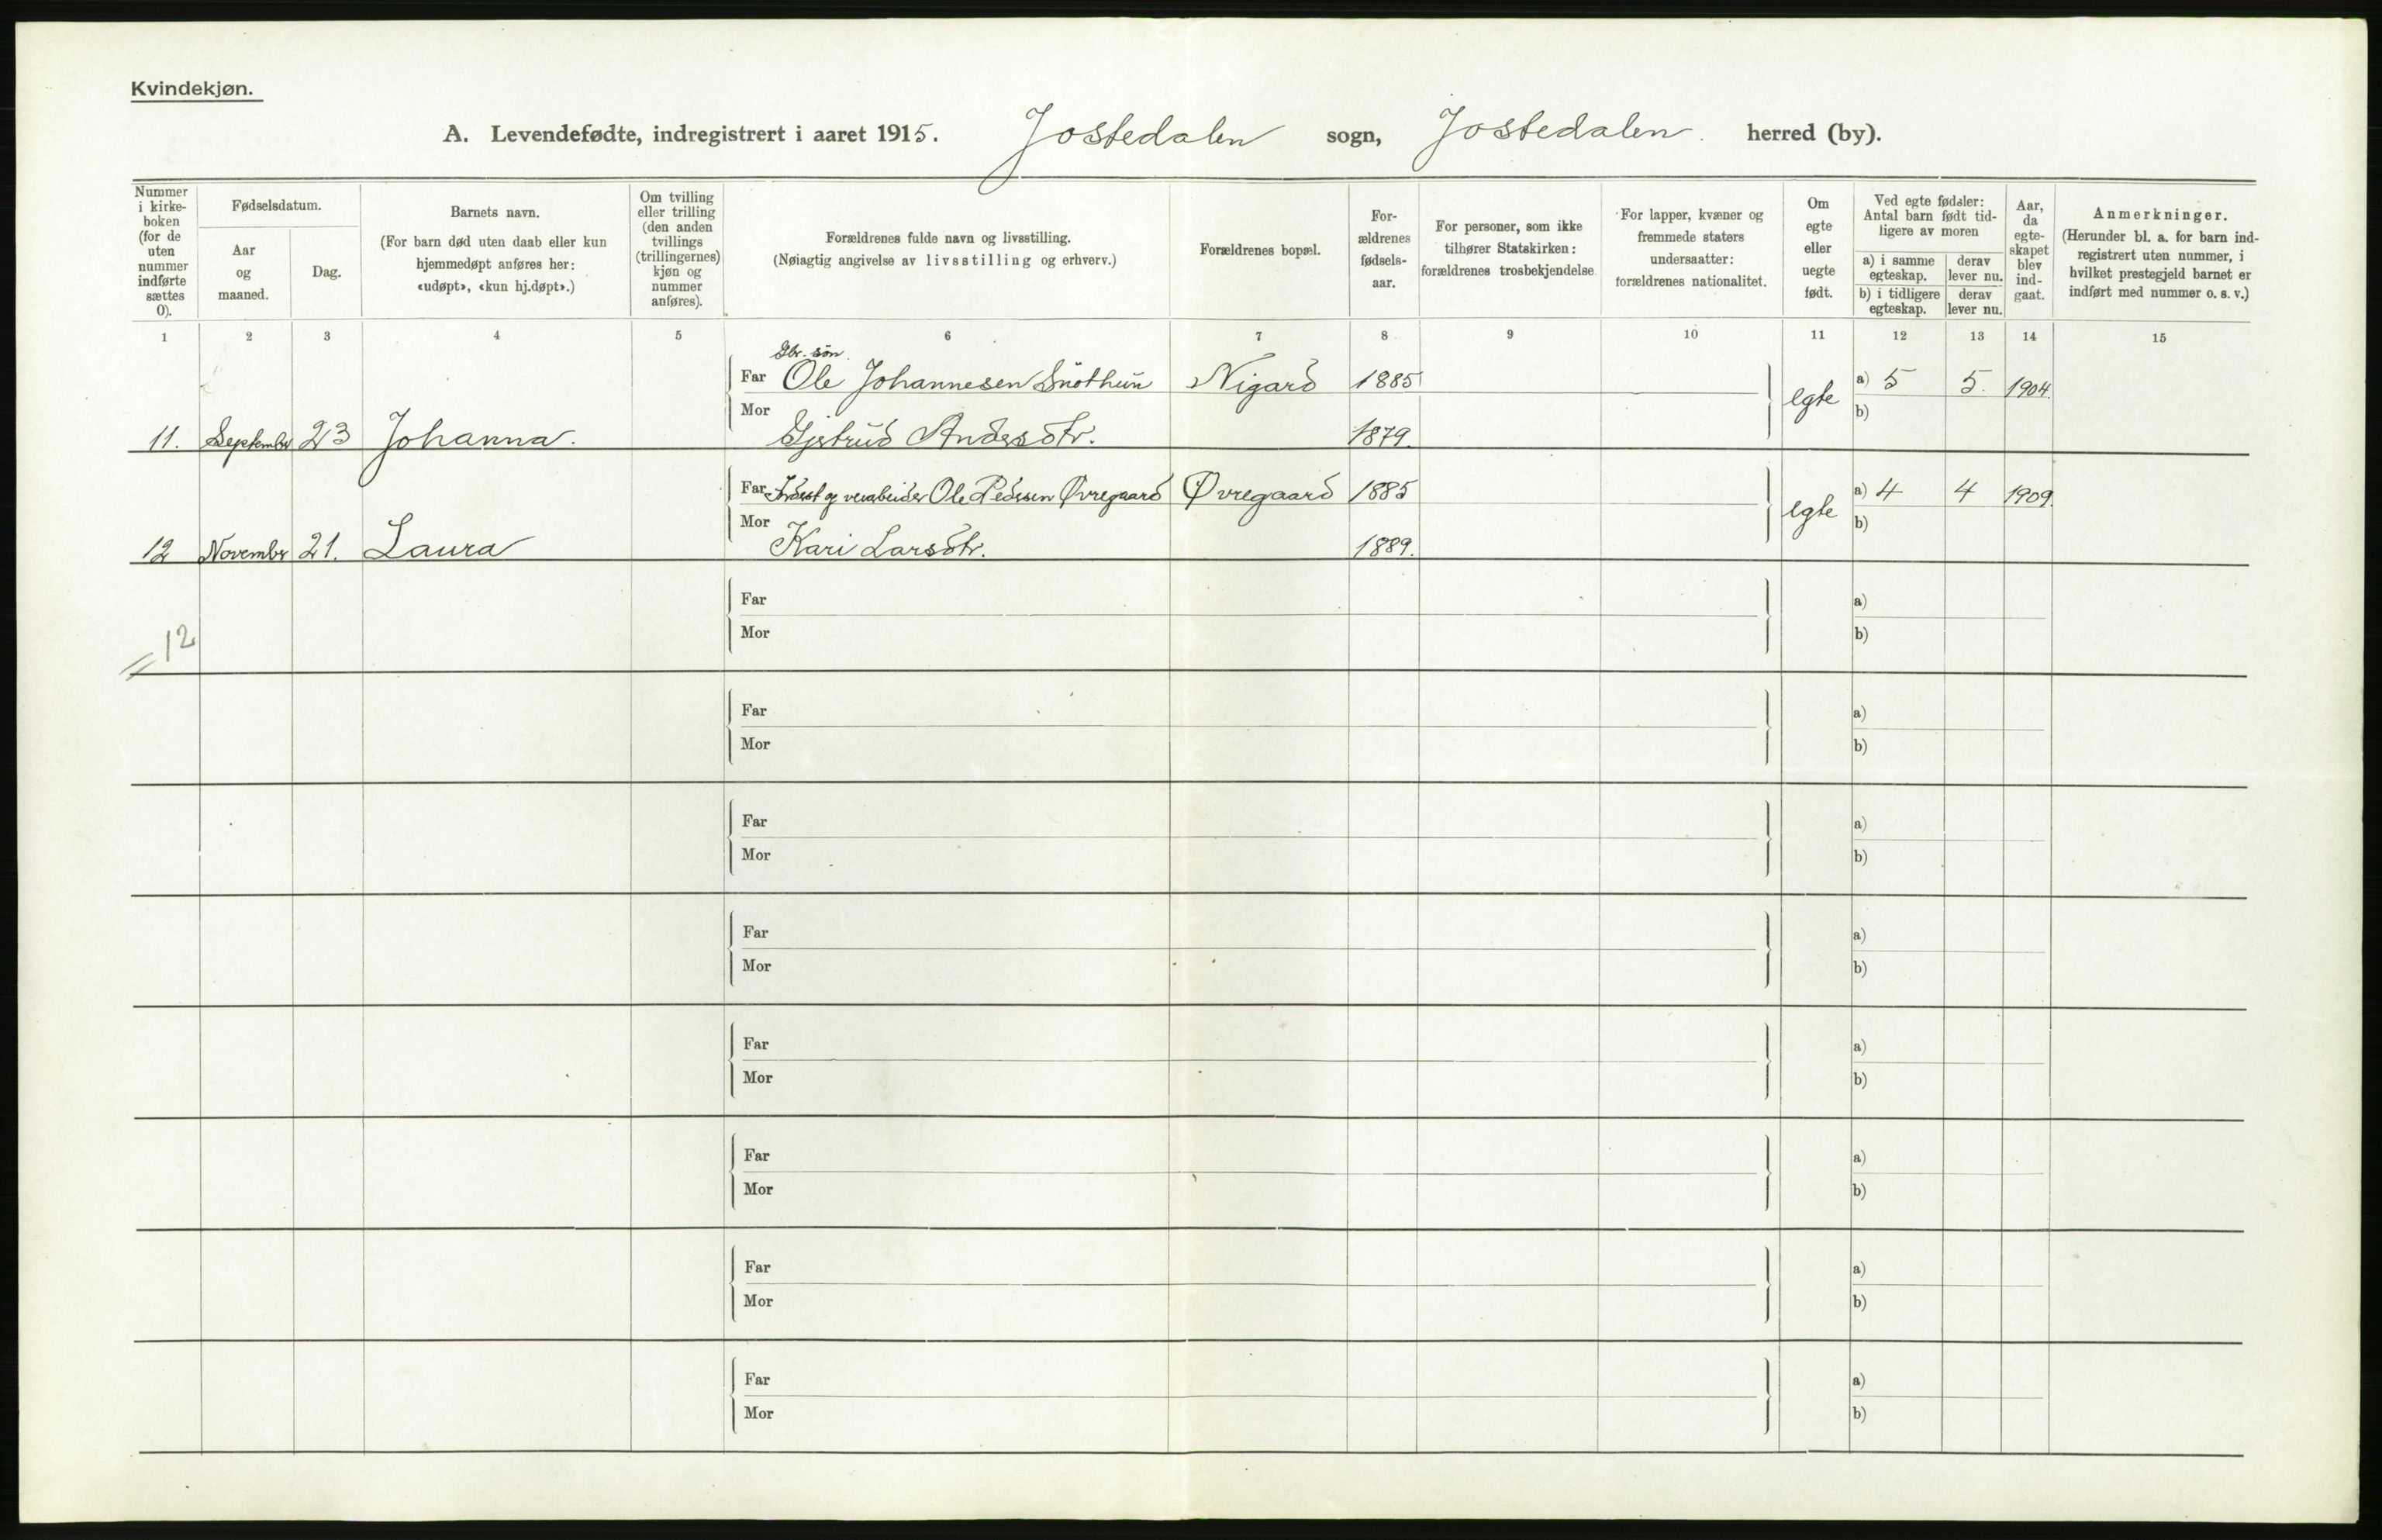 Kvindekjøn.
A. Levendefødte, indregistrert i aaret 1915. Jostedalen sogn, Jostedalen. herred (by).
Nummer i kirke- boken (for de uten nummer indførte sættes 0).
Fødselsdatum.
Aar og maaned.
Dag.
Barnets navn.
(For barn død uten daab eller kun hjemmedøpt anføres her: «udøpt», «kun hj.døpt».)
Om tvilling eller trilling (den anden tvillings (trillingernes) kjøn og nummer anføres).
Forældrenes fulde navn og livsstilling.
(Nøiagtig angivelse av livsstilling og erhverv.)
Forældrenes bopæl.
For- ældrenes fødsels- aar.
For personer, som ikke tilhører Statskirken: forældrenes trosbekjendelse
For lapper, kvæner og fremmede staters undersaatter: forældrenes nationalitet.
Om egte eller uegte født.
Ved egte fødsler: Antal barn født tid- ligere av moren
a) i samme egteskap. derav lever nu.
b) i tidligere egteskap. derav lever nu.
Aar, da egte- skapet blev ind- gaat.
Anmerkninger.
(Herunder bl. a. for barn ind- registrert uten nummer, i hvilket prestegjeld barnet er indført med nummer o. s. v.)
1 2 3 4 5 6 7 8 9 10 11 12 13 14 15
Gbr. søn.
Far Ole Johannesen Snøthun Nigard 1885 egte a) 5 5. 1904.
Mor b)
11. September 23 Johanna. Gjertrud Andersdtr. 1879.
Far og veiarbeider Ole Pedersen Øvregaard Øvregaard 1885 egte a) 4 4 1909.
Mor b)
12 November 21. Laura Kari Larsdtr. 1889.
Far a)
= 12 Mor b)
Far a)
Mor b)
Far a)
Mor b)
Far a)
Mor b)
Far a)
Mor b)
Far a)
Mor b)
Far a)
Mor b)
Far a)
Mor b)